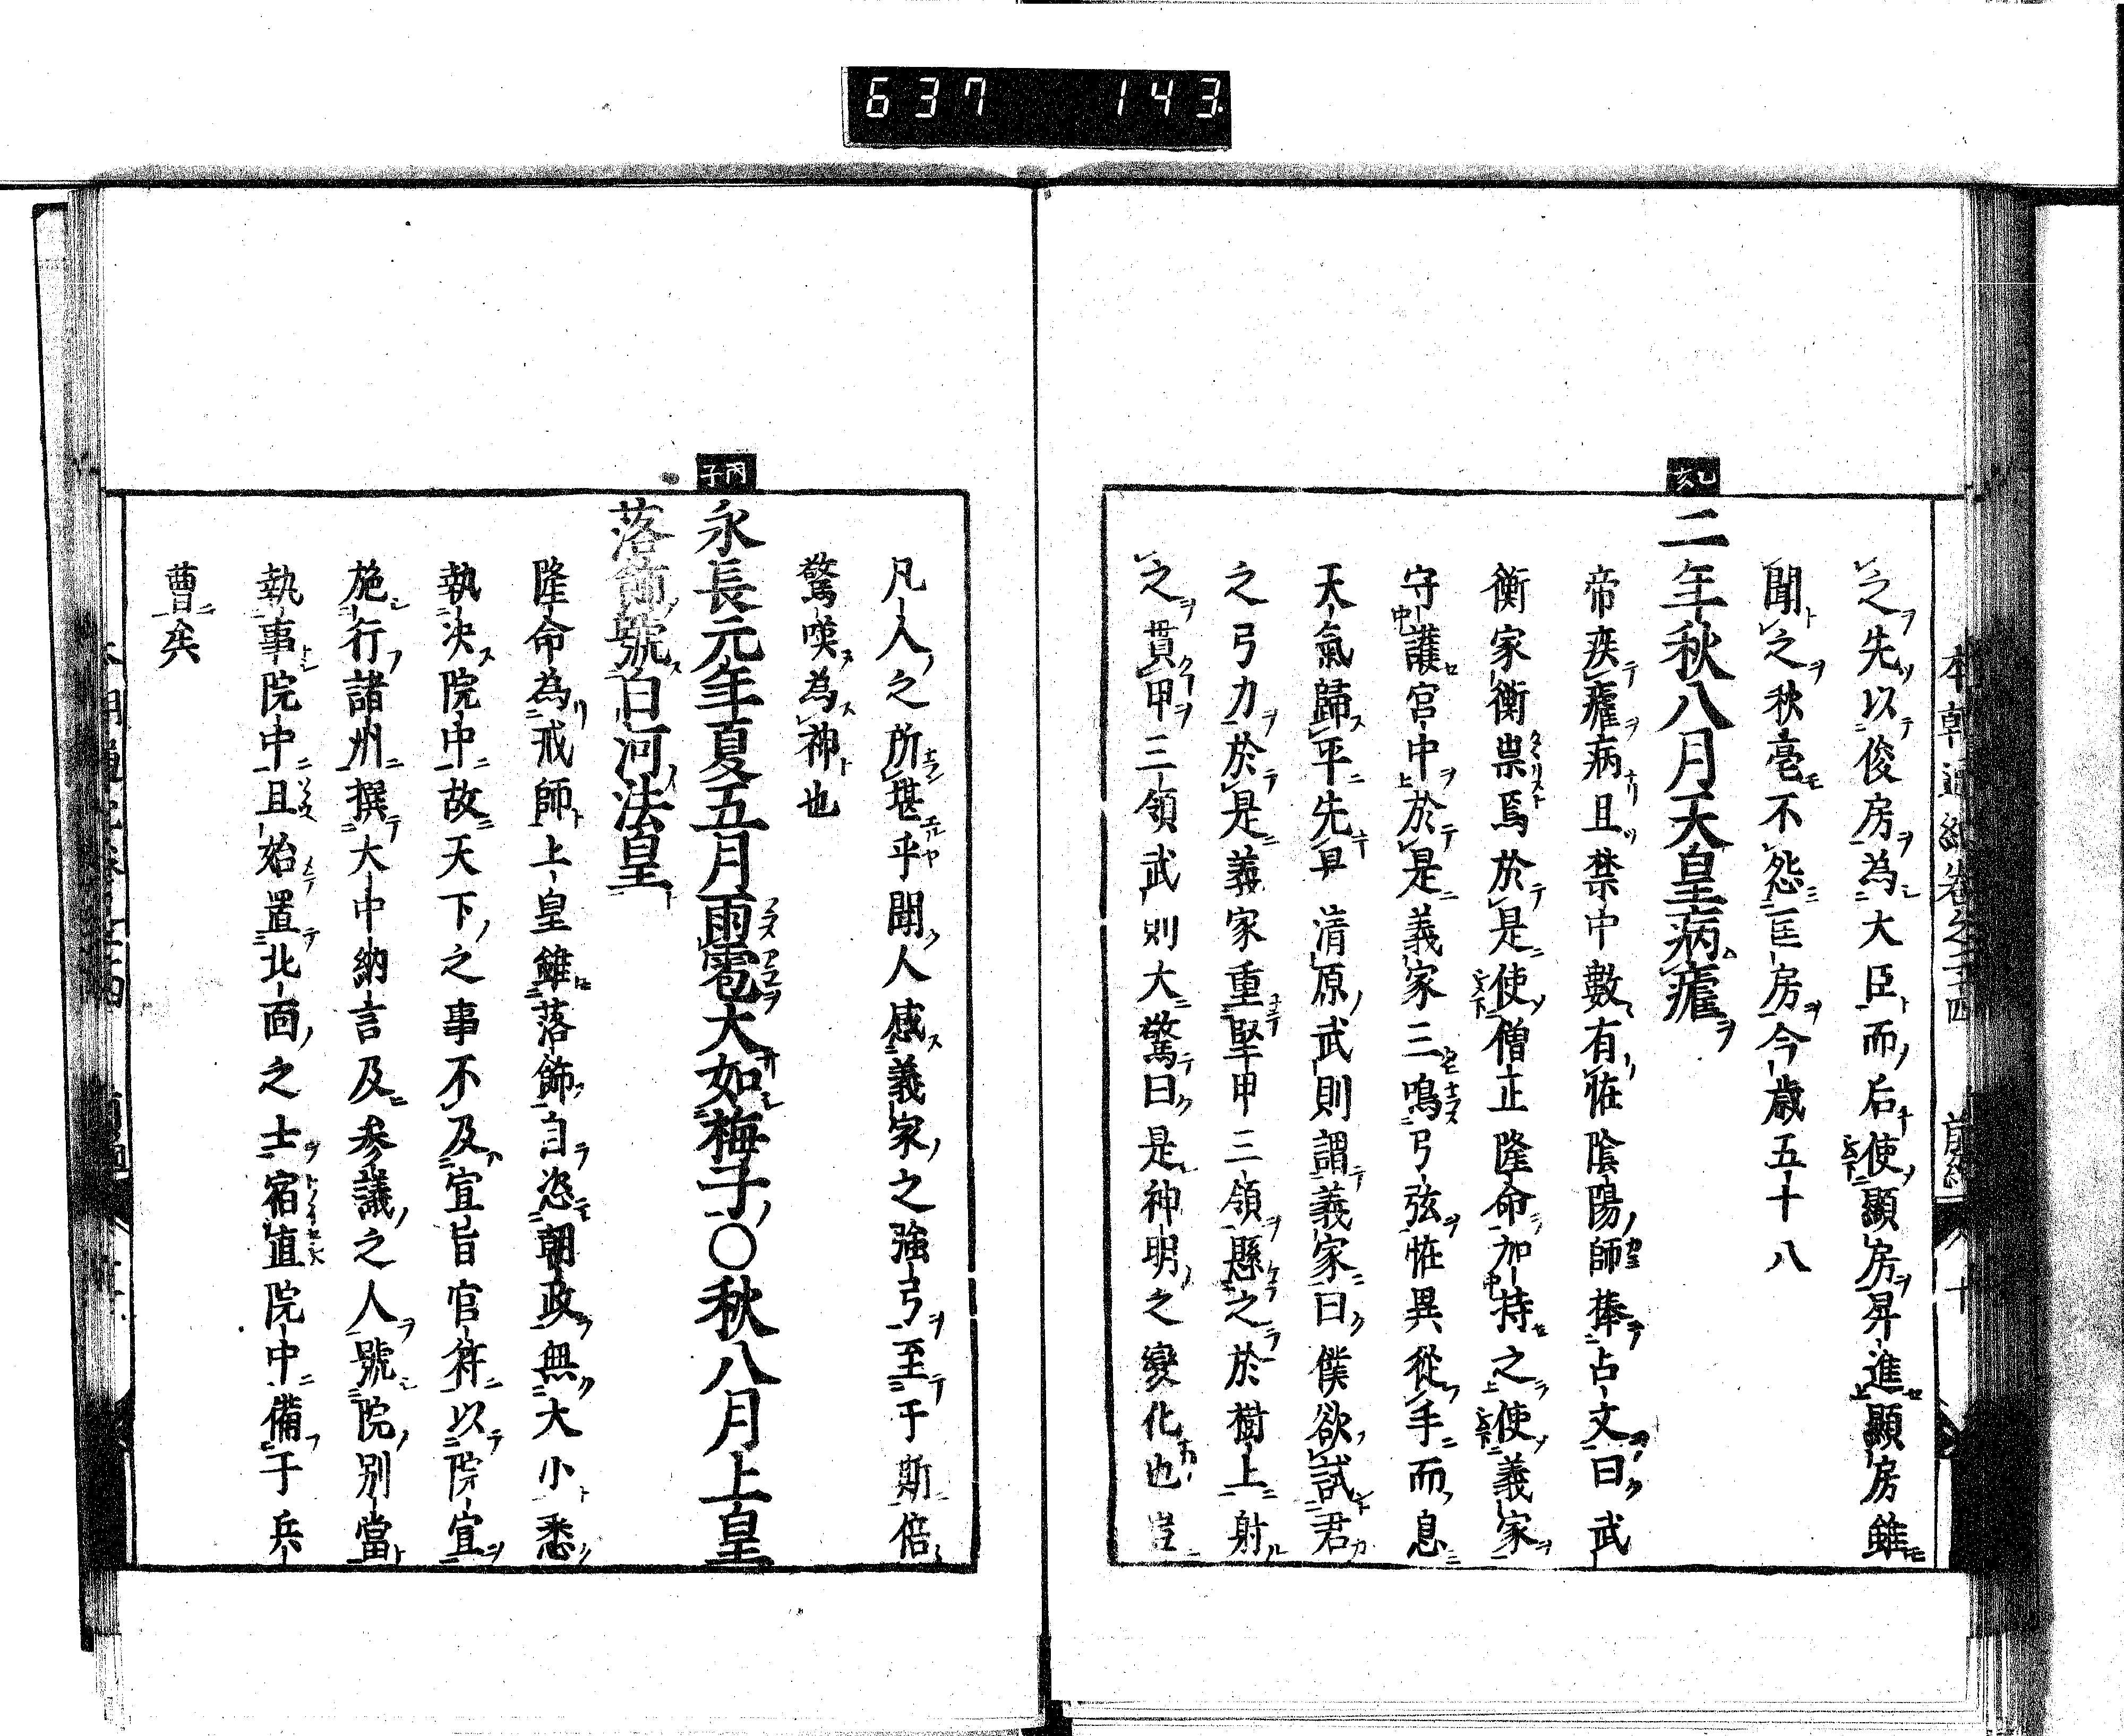 637 143
本朝通紀卷之二十四 前編 八 十
之先以俊房為大臣而后使顯房昇進顯房雖
聞之秋毫不怨匡房今歲五十八
乙亥
二年秋八月天皇病瘧
帝疾瘧病且禁中數有恠陰陽師捧占文曰武
衡家衡祟焉於是使僧正隆命加持之使義家
守護宮中於是義家三鳴弓弦恠異從手而息
天氣歸平先年清原武則謂義家曰僕欲試君
之弓力於是義家重堅甲三領懸之於樹上射
之貫甲三領武則大驚曰是神明之變化也豈
凡人之所堪乎聞人感義家之強弓至于斯倍
驚嘆為神也
丙子
永長元年夏五月雨雹大如梅子〇秋八月上皇
落飾號白河法皇
隆命為戒師上皇雖落飾自恣朝政無大小悉
執決院中故天下之事不及宣旨官符以院宣
施行諸州撰大中納言及參議之人號院別當
執事院中且始置北面之士宿直院中備于兵
曹矣